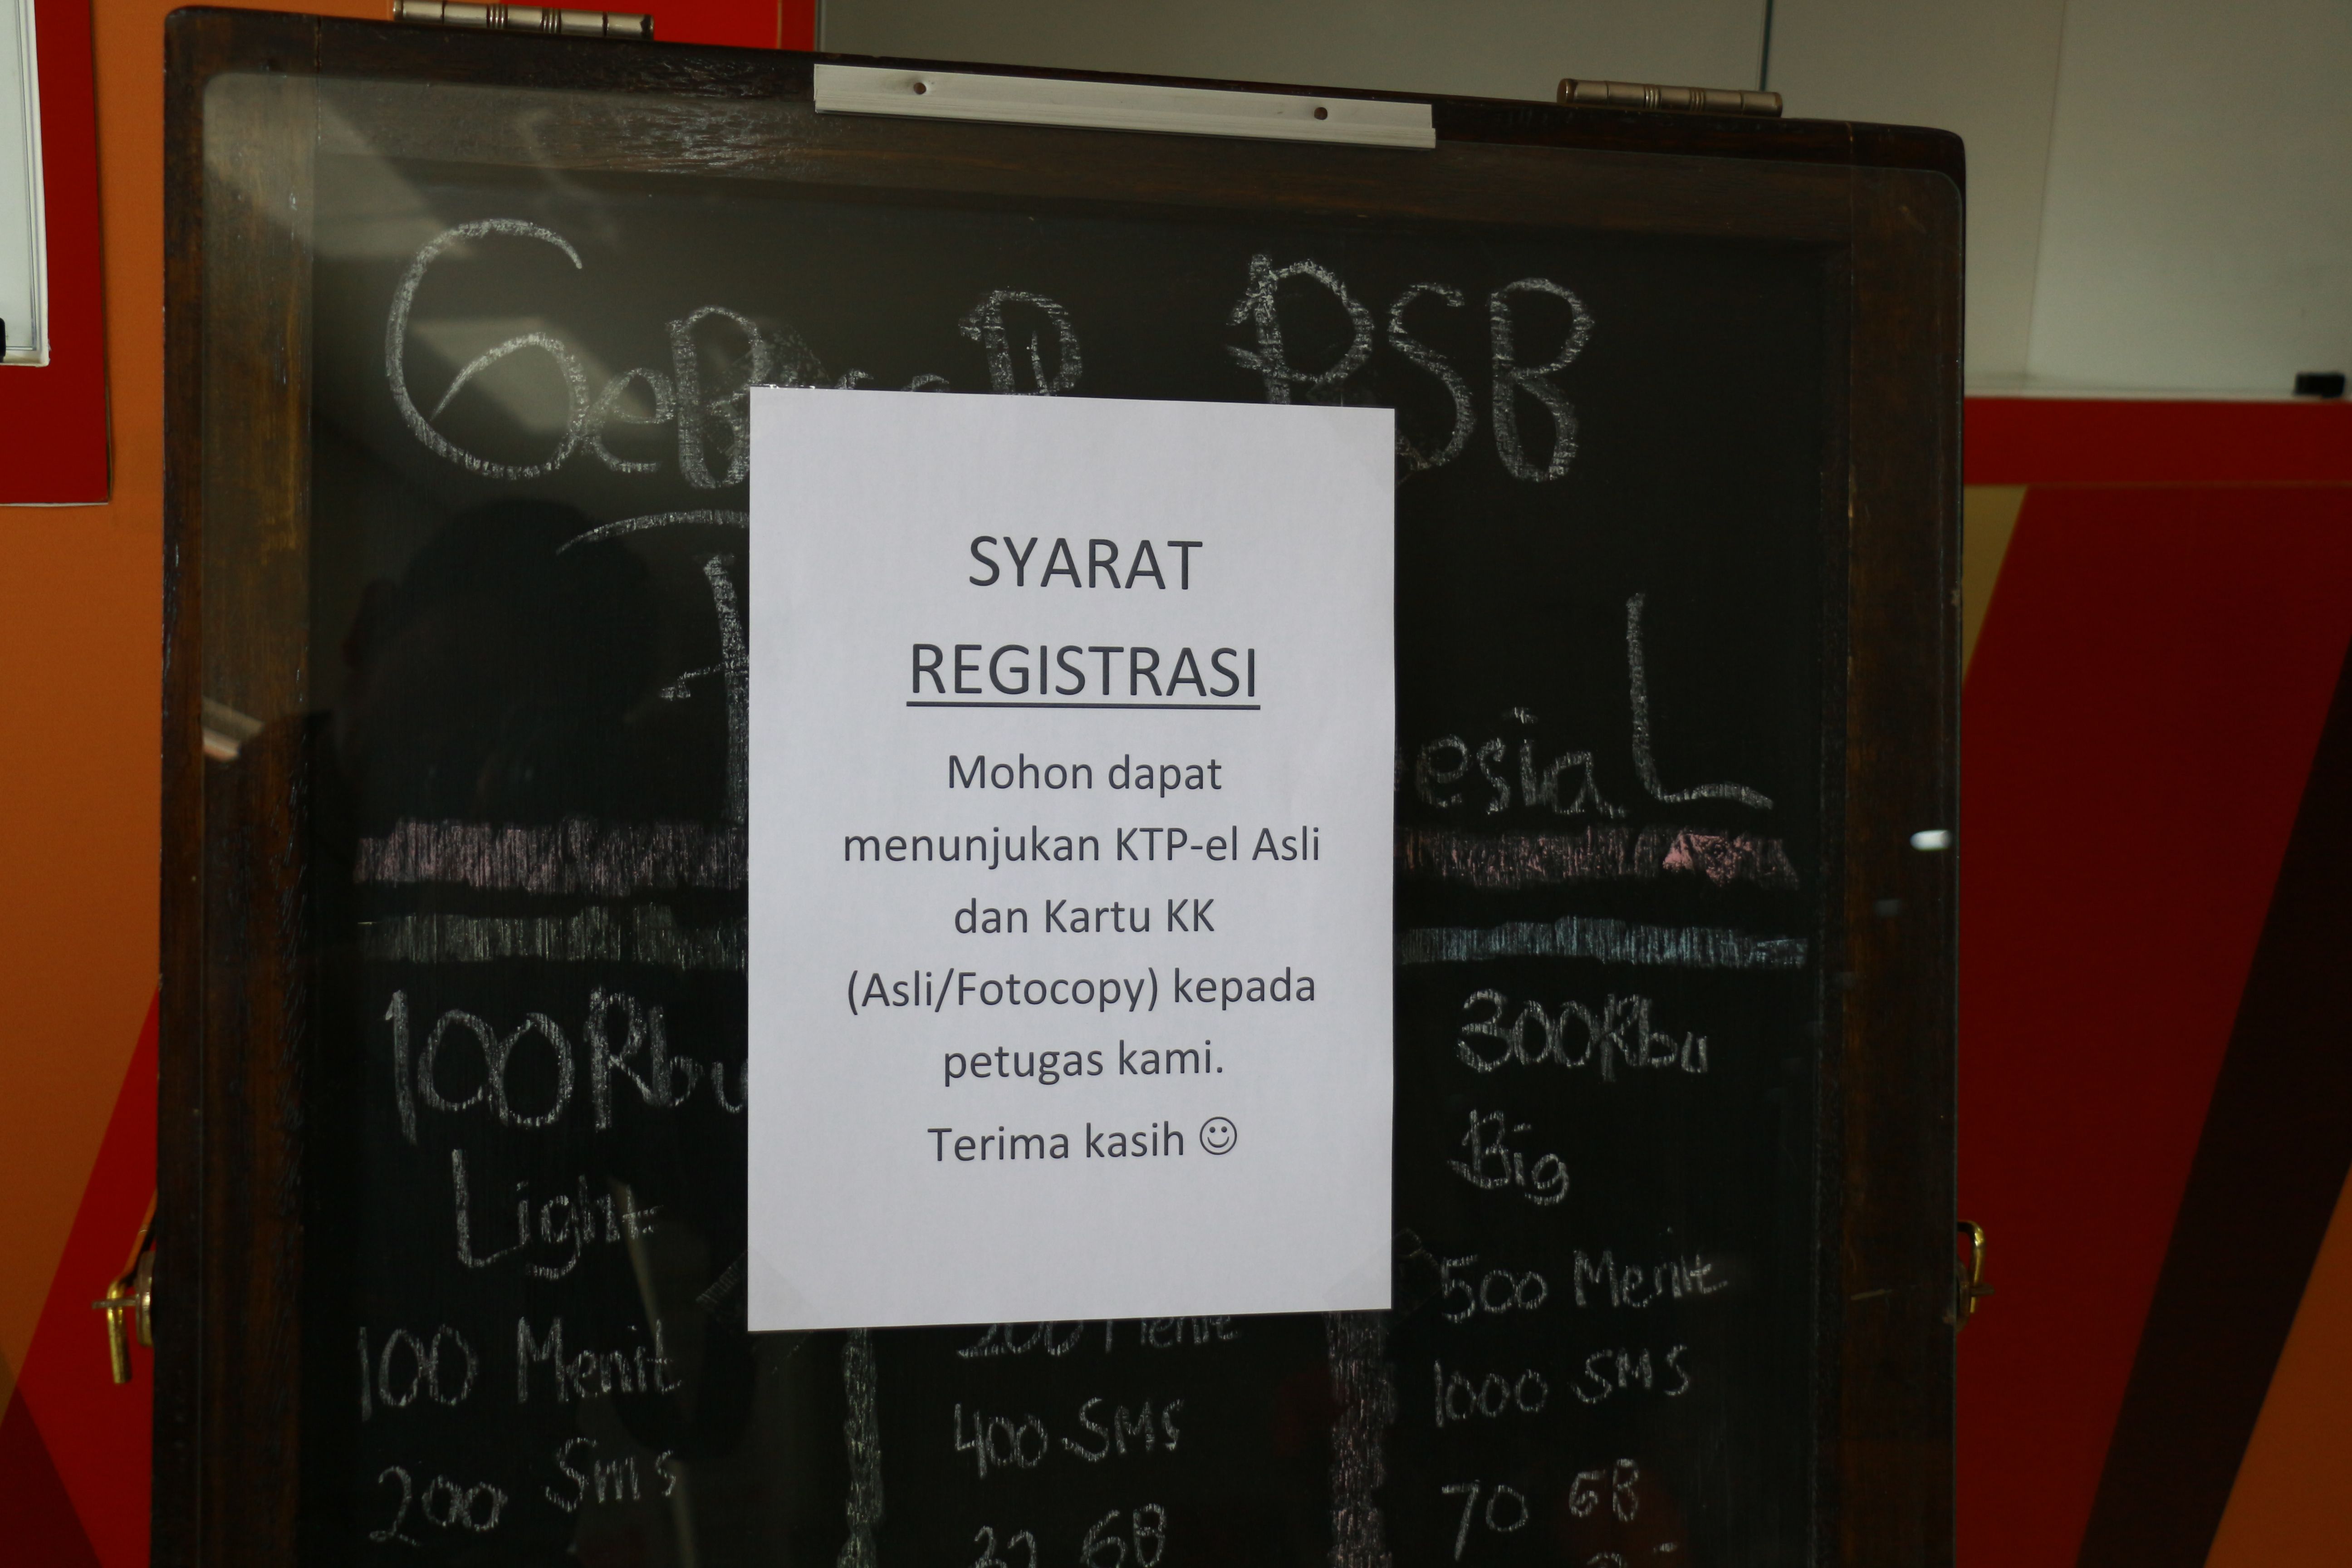 PSB
SYARAT
REGISTRASI
Mohon dapat
menunjukan KTP-el Asli
dan Kartu KK
(Asli/Fotocopy) kepada
petugas kami.
Terima kasih ☺
100Rbu
300Rbu
Light
Big
100 Menit
200 Menit
500 Menit
200 Sms
400 SMS
1000 SMS
70 GB